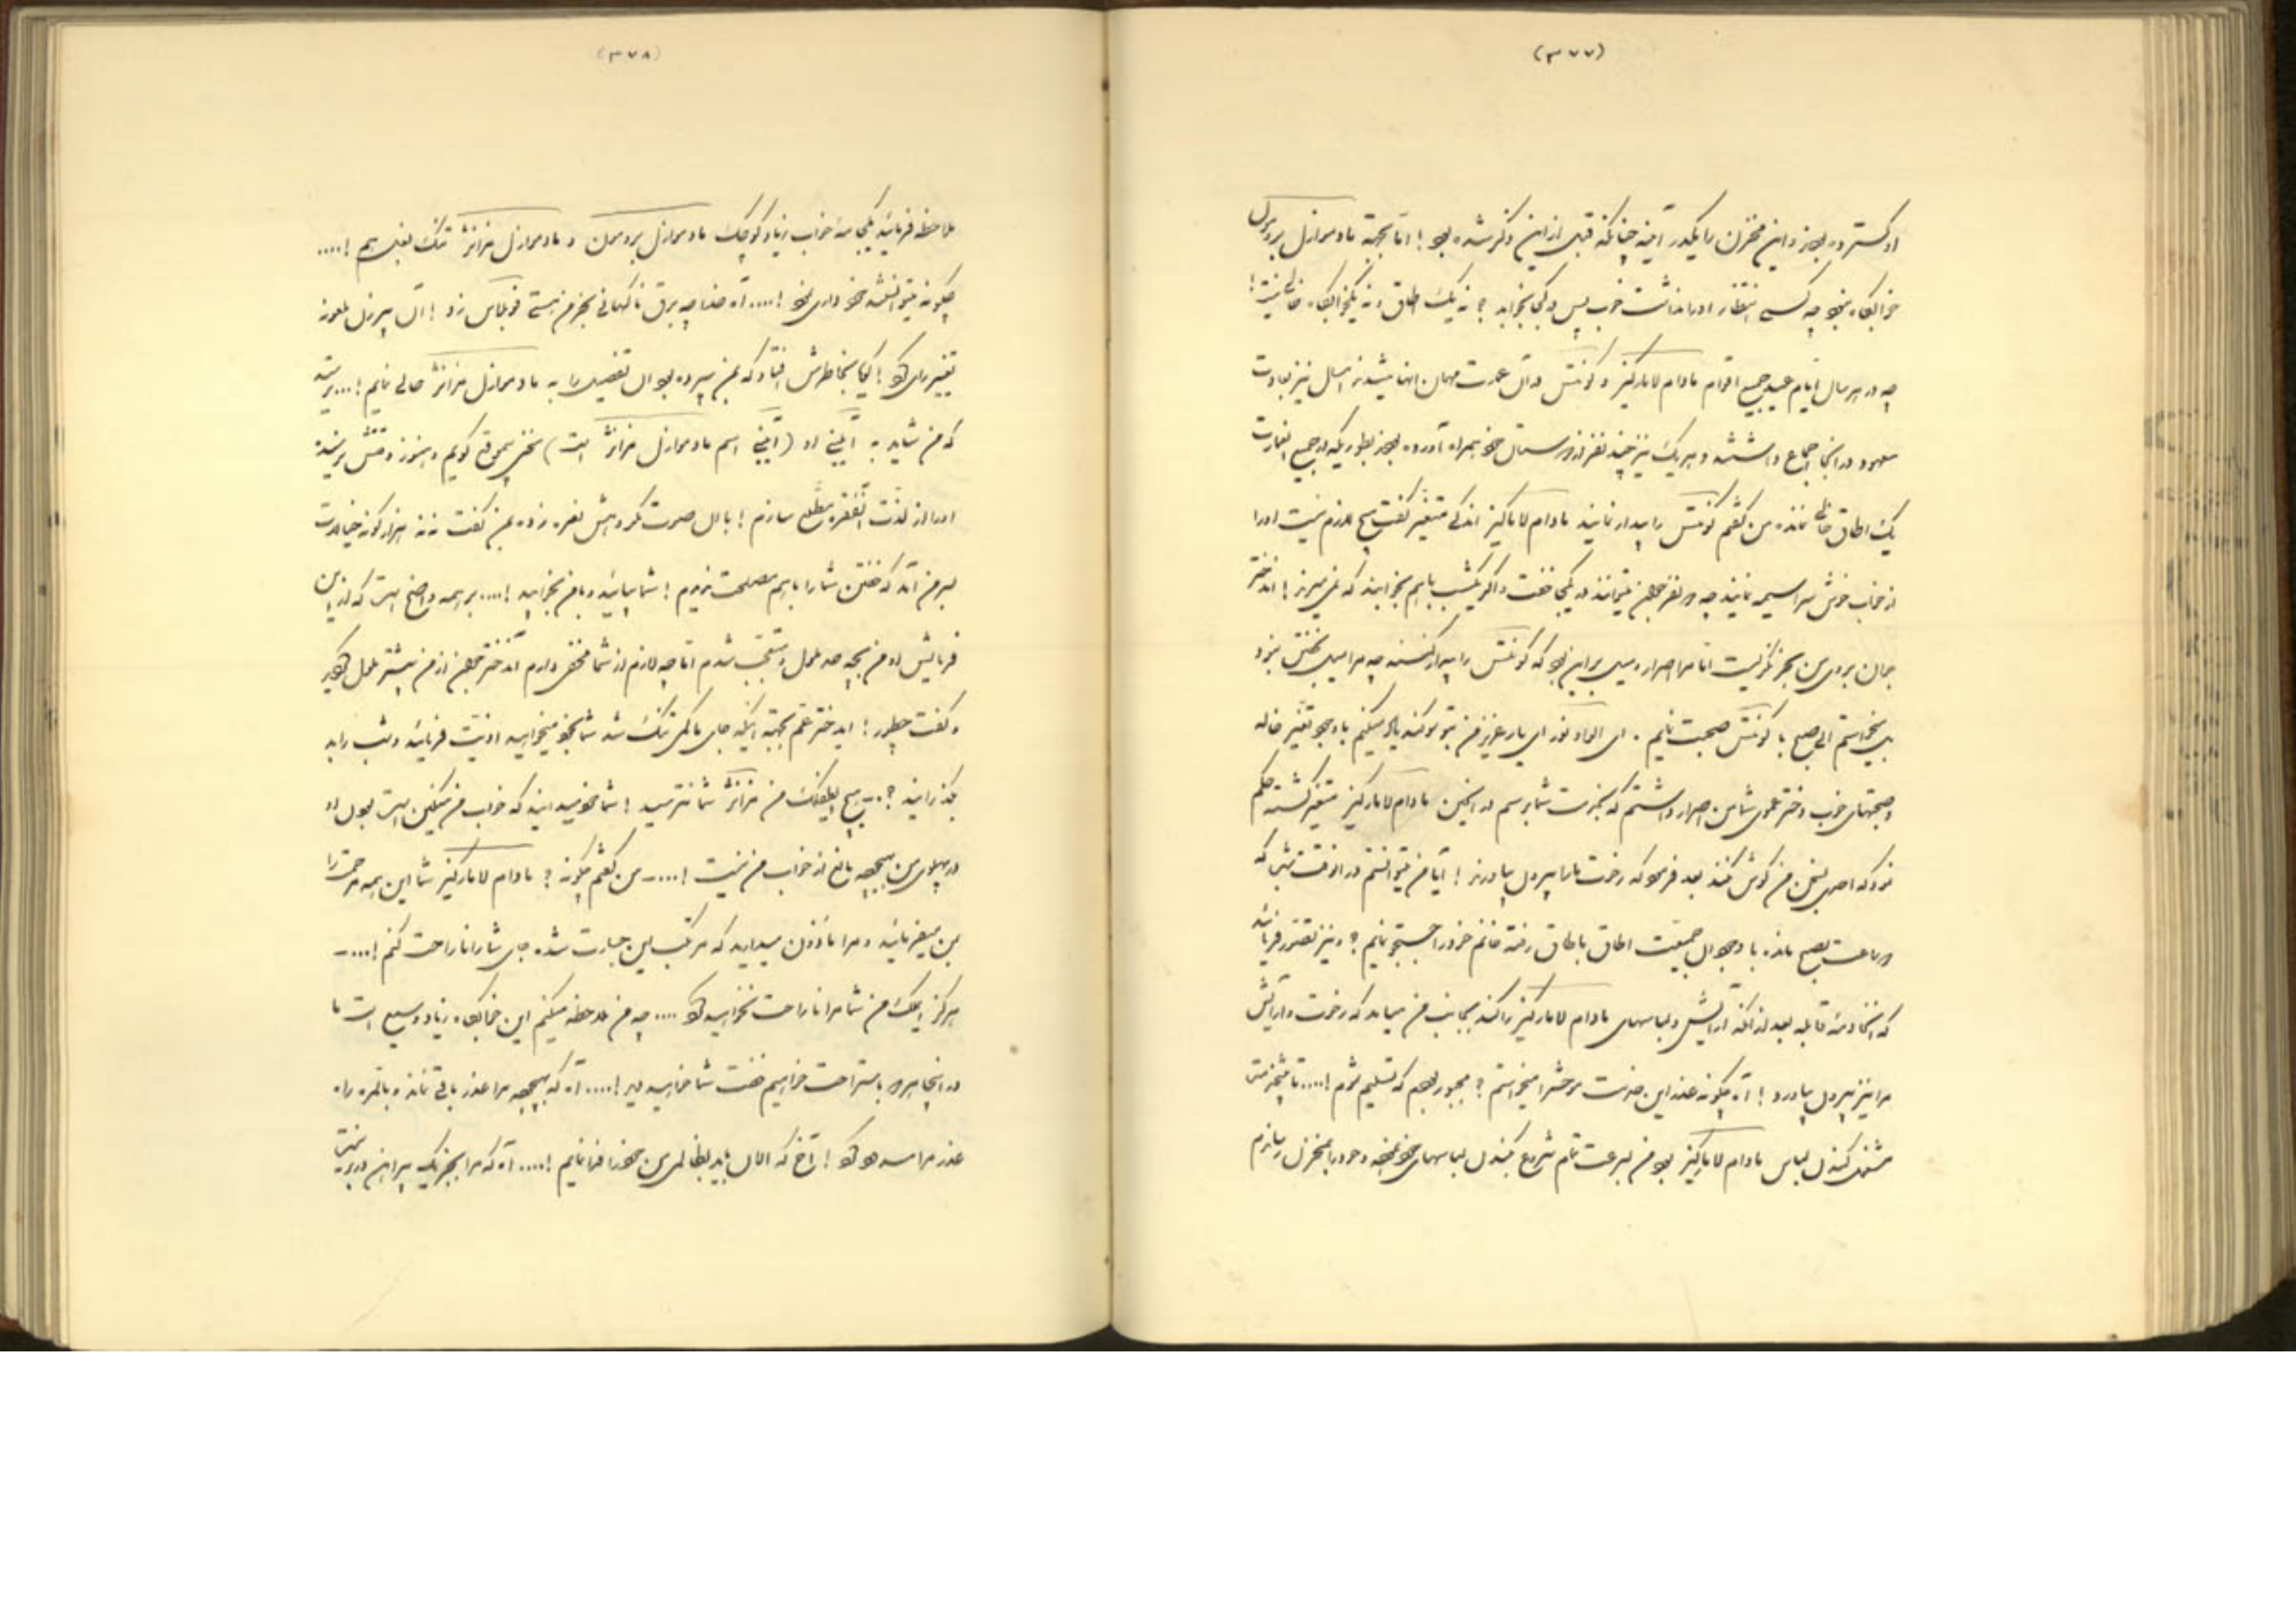 (۳۷۷)
او گسترده بود و این مخزن را یکدر آینه چنانکه قبل از این ذکر شده بود! اما بجهة مادموازل
خوابگاه نبود چه کسی انتظار او را نداشت خوب پس در کجا بخوابد؟ نه یک اطاق و نه یک خوابگاه خالی نیست!
چه در هر سال ایام عید جمیع اقوام مادام لامارکیز و کونتس در آن عمارت مهمان آنها میشدند امسال نیز بعادت
معهود در آنجا اجتماع داشتند و هر یک نیز چند نفر از دوستان خود همراه آورده بودند بطوریکه در جمیع عمارت
یک اطاق خالی نمانده من گفتم کونتس را بیدار نمایند مادام لامارکیز اندکی متغیر گفت هیچ لازم نیست او را
از خواب خوش سراسیمه نمایند چه دو نفر میتوانند در یکجا خفت و اگر یکشب باهم بخوابند که نمی‌میرند! آندختر
جوان بروی من نگریست اما مرا اصرار بر این بود که کونتس را بیدار کنند چه مرا میل بخفتن نبود
میخواستم الی صبح با کونتس صحبت نمایم. ای یار عزیز من بتو سوگند یاد میکنم با وجود تغیر خاله
و صحبتهای خوب دختر عموی شما من اصرار داشتم که بخدمت شما برسم در این حین مادام لامارکیز متغیر گشته حکم
نمود که احدی بسخن من گوش نکند بعد فرمود که رخت ما را بیرون بیاورند! آیا من میتوانستم در آنوقت شب که
دو ساعت بصبح مانده با وجود آن جمعیت اطاق باطاق رفته خانم خود را جستجو نمایم؟ و نیز تصور فرمائید
که آن خادمه قابله بعد از آنکه آرایش و لباسهای مادام لامارکیز را کند بجانب من میآید که رخت و آرایش
مرا نیز بیرون بیاورد! آه چگونه عذر این خدمت موحش را میخواستم؟ مجبور بودم که تسلیم شوم!.... تا پیشخدمت
مشغول کندن لباس مادام لامارکیز بود من بسرعت تمام شروع بکندن لباسهای خود نموده و خود را بمخزن رسانیدم
(۳۷۸)
ملاحظه فرمائید یکجامه خواب زیاد کوچک مادموازل و مادموازل فرانژ تنگ بغل هم!....
چگونه میتوانستند خودداری نمود!.... آه خدا چه برق ناگهانی بخرمن هستی زد! آن پیرزن ملعونه
تغییر رای داد! گویا بخاطرش افتاد که بمن سپرده بود آن تفصیل را به مادموازل فرانژ حالی نمایم!... ترسید
که من شاید به آگنی او (آگنی اسم مادموازل فرانژ است) سخنی بیموقع گویم و هنوز وقتش نرسیده
او را از لذت آن فقره مطلع سازم! با آن صورت مکروهش نعره زده بمن گفت نه نه هزار گونه خیالات
بسر من آمد که خفتن شما را باهم مصلحت ندیدم! شما بیائید و با من بخوابید!.... بر همه واضح است که از این
فرمایش او من بچه حد ملول و متعجب شدم اما چه لازم از شما مخفی دارم آندختر از من بیشتر ملول گردید
و گفت چطور! ای دختر عم بجهة اینکه جای ما کمی تنگ شد شما بخود میخواهید اذیت فرمائید و شب را بد
بگذرانید؟.. – هیچ من فرانژ شما نترسید! شما خود میدانید که خواب من سنگین است بودن او
در پهلوی من بهیچوجه مانع از خواب من نیست!.... – من گفتم چگونه؟ مادام لامارکیز شما این همه مرحمت را
بمن میفرمائید و مرا ماذون میدارید که مرتکب این جسارت شده جای شما را ناراحت کنم!.... –
هرگز من شما مرا ناراحت نخواهید کرد.... چه من ملاحظه میکنم این خوابگاه زیاد وسیع است ما
در اینجا هر دو باستراحت خواهیم خفت شما خواهید دید!.... آه که بهیچوجه مرا عذر باقی نماند و بالمره راه
عذر مرا مسدود کرد! آخ که الان باید بظالمی من حذر نمایم!.... آه که مرا بجز یک پیراهن در بر نیست